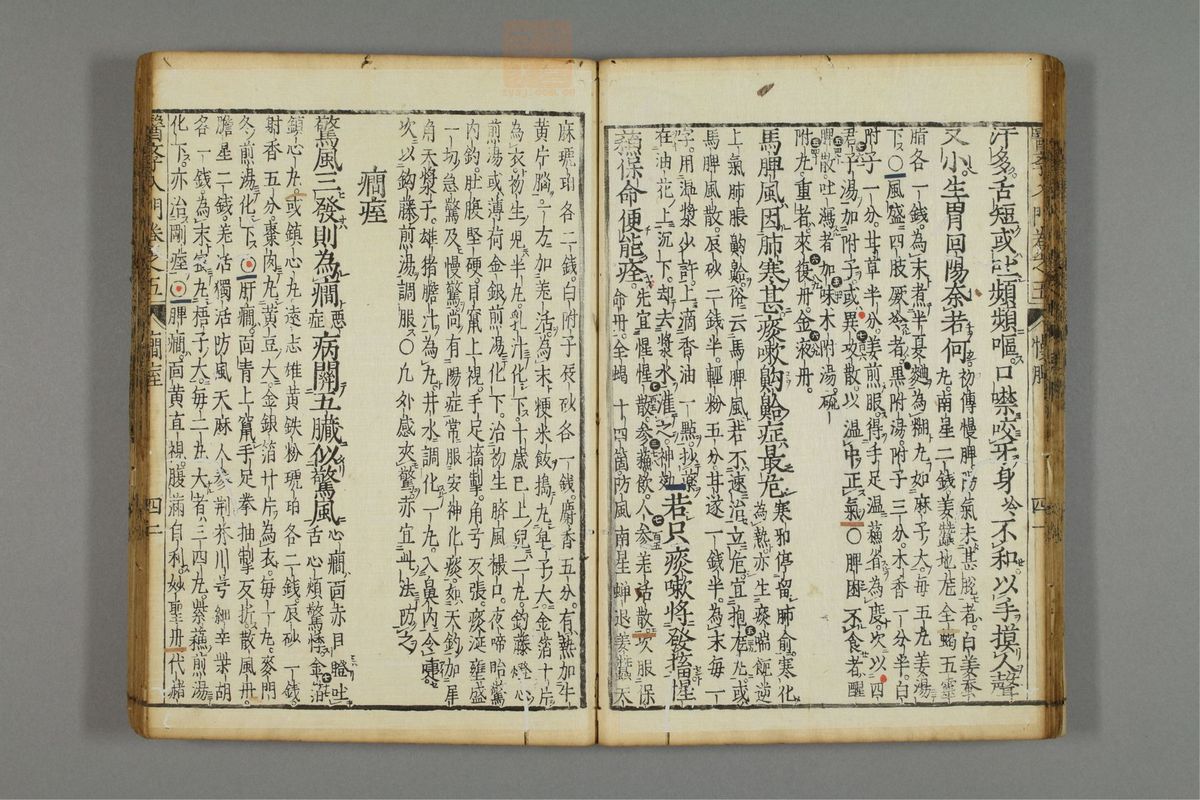 汗多舌短或吐頻頻嘔口噤咬牙身冷不和以手摸人聲
又小生胃回陽奈若何初傳慢脾陽氣未甚脫者白姜蚕
丸南星二錢姜蚕地龙全蝎五灵
脂各一錢為末煮半夏麯為糊丸如麻子大每五丸姜湯
下○風盛四肢厥冷者黑附湯附子三分木香一分半白
附子一分甘草半分姜煎服得手足温穌省為度次以四
君子湯加附子或異攻散以温中正氣○脾困不食者醒
脾散吐瀉者加味木附湯硫
附丸重者來復丹金液丹
馬脾風因肺寒甚痰哮齁䶎症最危寒邪停留肺俞寒化
為熱亦生痰喘飽逆
上氣肺脹齁䶎俗云馬脾風若不速治立危宜抱龙丸或
馬脾風散辰砂二錢半輕粉五分甘遂一錢半為末每一
字用温漿少許上滴香油一點抄藥
在油花上沉下却去漿水灌之神効
若只痰嗽將發搐惺
穌保命便能痊先宜惺惺散参穌飲人参羌活散次服保
命丹全蝎十四箇防風南星蝉退姜蚕天
麻琥珀各二錢白附子辰砂各一錢麝香五分有熱加牛
黄片腦一方加羌活為末粳米飯搗丸皂子大金箔十片
為衣初生兒半丸乳汁化下十歲已上兒二丸鈎藤燈心
煎湯或薄荷金銀煎湯化下治初生臍風撮口夜啼胎驚
内釣肚腹堅硬目竄上視手足搐掣角弓反張痰涎壅盛
一切急驚及慢驚尚有陽症常服安神化痰如天釣加犀
角天漿子雄猪膽汁為丸井水調化一丸入鼻内令嚏
次以鈎藤煎湯調服○凡外感夾驚亦宜此法防之
癇痓
驚風三發則為癇惡症病關五臟似驚風心癇面赤目瞪吐
舌心煩驚悸金箔
鎮心丸或鎮心丸遠志雄黄鉄粉琥珀各二錢辰砂一錢
射香五分棗肉丸黄豆大金銀箔廿片為衣每一丸麥門
冬煎湯化下○肝癇面青上竄手足拳抽掣反折散風丹
膽星二錢羌活獨活防風天麻人参荆芥川芎細辛柴胡
各一錢為末蜜丸梧子大每二丸大者三四丸紫蘓煎湯
化下亦治剛痓○脾癇面黄直視腹滿自利妙聖丹代赭
醫學入門卷之五
癇痓
四二